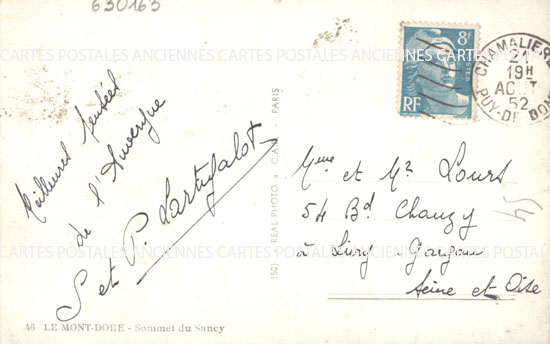 630163
Meilleures pensées
de l'Auvergne
S et P. Lartigalot
46 LE MONT-DORE - Sommet du Sancy
(50) REAL PHOTO C.A.P. PARIS
8F
POSTES
RF
CHAMALIERES
21
19H
AOUT
52
PUY-DE-DOME
Mme et Mr Lours
54 Bd Chanzy
à Livry-Gargan
Seine et Oise
54
ANCIENNES CARTES POSTALES ANCIENNES CARTES POSTALES ANCIENNES
CARTES POSTALES ANCIENNES CARTES POSTALES ANCIENNES CARTES POSTALES